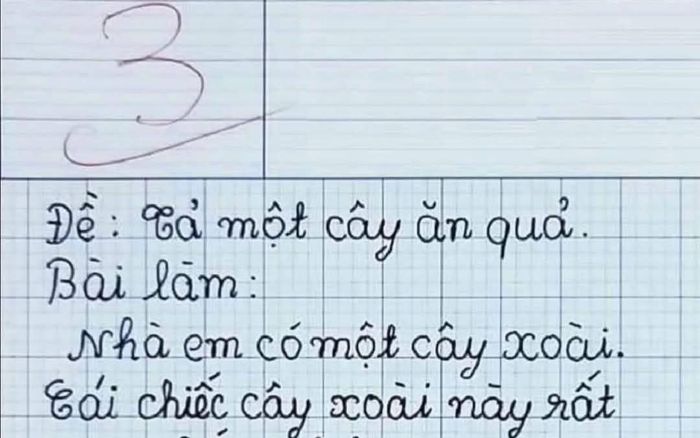 3
Đề: Tả một cây ăn quả.
Bài làm:
Nhà em có một cây xoài.
Cái chiếc cây xoài này rất